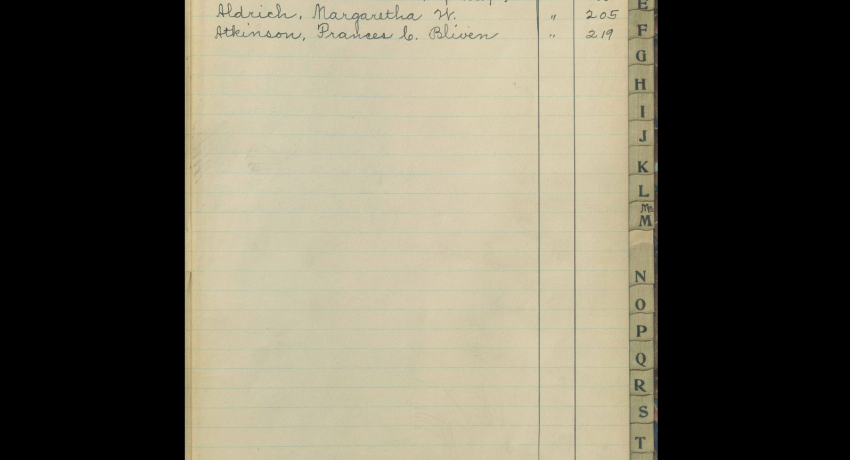 Aldrich, Margaretha W. " 205
Atkinson, Frances C. Bliven " 219
E
F
G
H
I
J
K
L
Mc
M
N
O
P
Q
R
S
T